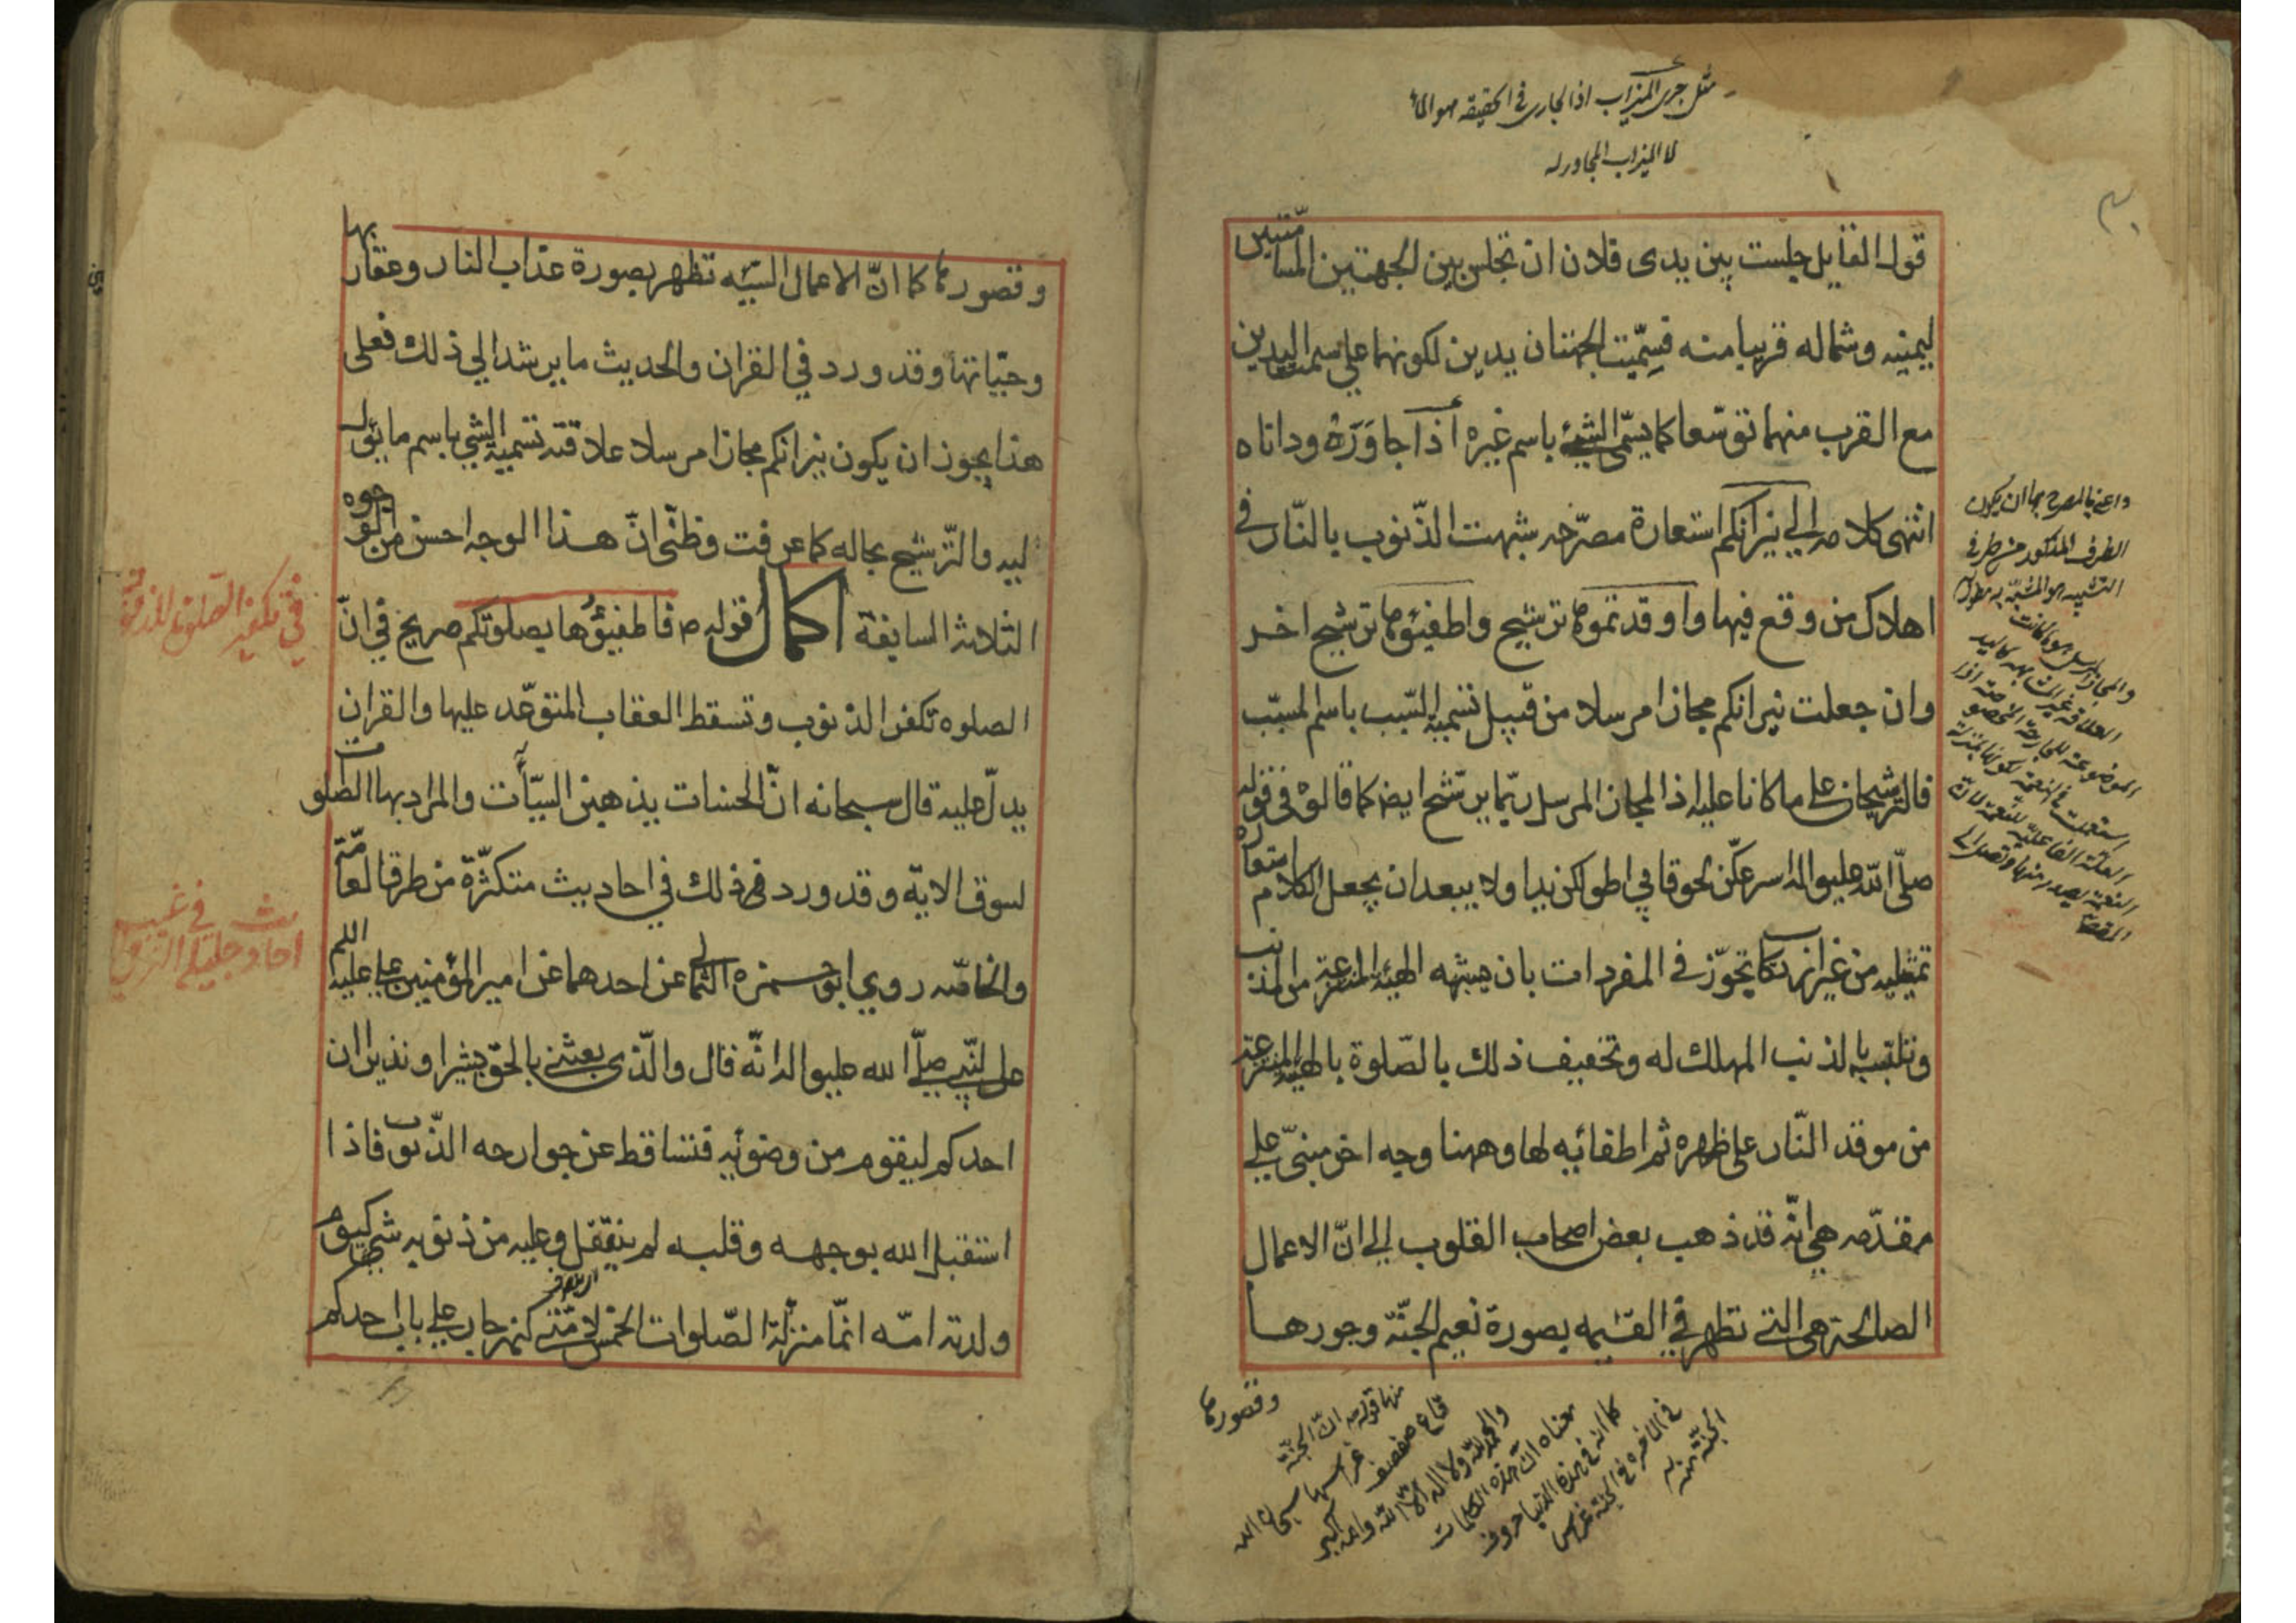 مثل جرى الميزاب اذ الجارى فى الحقيقه هو الماء
لا الميزاب المجاور له
٣٠
قول القايل جلست بين يدى فلان ان تجلس بين الجهتين المسامتتين
ليمينه وشماله قريبا منه فسميت الجهتان يدين لكونهما على سمت اليدين
مع القرب منهما توسعا كما يسمى الشئ باسم غيره اذا جاوره وداناه
انتهى كلامه الى نيرانكم استعارة مصرحه شبهت الذنوب بالنار فى
اهلاك من وقع فيها واوقدتموها ترشيح واطفيؤها ترشيح اخر
وان جعلت نيرانكم مجازا مرسلا من قبيل تسمية السبب باسم المسبب
فالترشيحان على ما كانا عليه اذ المجاز المرسل ربما يرشح ايضا كما قالوه فى قوله
صلى الله عليه واله اسرعكن لحوقا بى اطولكن يدا ولا يبعد ان يجعل الكلام استعارة
تمثيليه من غير ارتكاب تجوز فى المفردات بان يشبه الهيئه المنتزعة من المذنب
وتلبسه بالذنب المهلك له وتخفيف ذلك بالصلوة بالهيئه المنتزعة
من موقد النار على ظهره ثم اطفائه لها وههنا وجه اخر مبنى على
مقدمه هى انه قد ذهب بعض اصحاب القلوب الى ان الاعمال
الصالحة هى التى تظهر فى القيمه بصورة نعيم الجنة وحورها
وقصورها
واعنى بالمصرح بها ان يكون
الطرف المذكور من طرفى
التشبيه هو المشبه به مطول
والمجاز المرسل هو ما كانت
العلاقة غير المشابهه كاليد
الموضوعة للجارحة المخصوصة اذا
استعملت فى النعمة لكونها بمنزلة
العلة الفاعلية للنعمة لان
النعمة يصدر منها وتصل الى
المقصود
منها قوله ان الجنة
قاع صفصف غراسها سبحان الله
والحمد لله ولا اله الا الله والله اكبر
معناه ان هذه الكلمات
كما انه فى هذه الدنيا حروف
فى الاخره فى الجنة غرس
الجنة منه
وقصورها كما ان الاعمال السيئه تظهر بصورة عذاب النار وعقاربها
وحياتها وقد ورد فى القران والحديث ما يرشد الى ذلك فعلى
هذا يجوز ان يكون نيرانكم مجازا مرسلا علاقته تسمية الشئ باسم ما يؤل
اليه والترشيح بحاله كما عرفت وظنى ان هذا الوجه احسن من الوجوه
الثلاثه السابقة اكمال قوله ص فاطفيؤها بصلوتكم صريح فى ان
الصلوه تكفر الذنوب وتسقط العقاب المتوعد عليها والقران
يدل عليه قال سبحانه ان الحسنات يذهبن السيئات والمراد بها الصلوات
لسوق الايه وقد ورد فى ذلك فى احاديث متكثرة من طرق العامة
والخاصه روى ابو حمزه الثمالى عن احدهما عن امير المؤمنين على عليه السلم
عن النبى صلى الله عليه واله انه قال والذى بعثنى بالحق بشيرا ونذيرا ان
احدكم ليقوم من وضوئه فتساقط عن جوارحه الذنوب فاذا
استقبل الله بوجهه وقلبه لم ينفتل وعليه من ذنوبه شئ كيوم
ولدته امه انما منزلة الصلوات الخمس لامتى كنهر جار على باب احدكم
فى تكفير الصلوة للذنوب